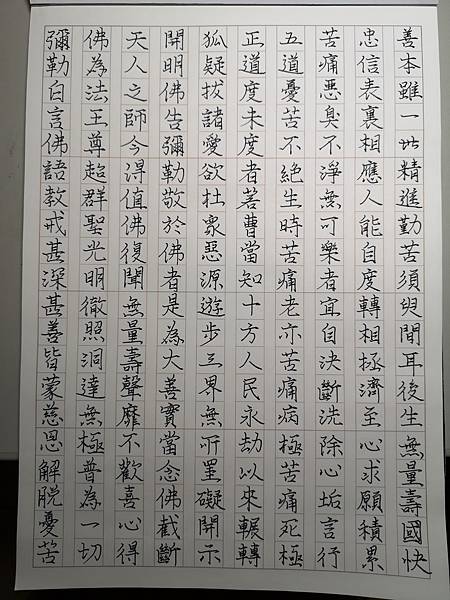 善本雖一世精進勤苦須臾間耳後生無量壽國快
忠信表裏相應人能自度轉相拯濟至心求願積累
苦痛惡臭不淨無可樂者宜自決斷洗除心垢言行
五道憂苦不絕生時苦痛老亦苦痛病極苦痛死極
正道度未度者若曹當知十方人民永劫以來輾轉
狐疑拔諸愛欲杜眾惡源遊步三界無所罣礙開示
開明佛告彌勒敬於佛者是為大善實當念佛截斷
天人之師今得值佛復聞無量壽聲靡不歡喜心得
佛為法王尊超群聖光明徹照洞達無極普為一切
彌勒白言佛語教戒甚深甚善皆蒙慈恩解脫憂苦